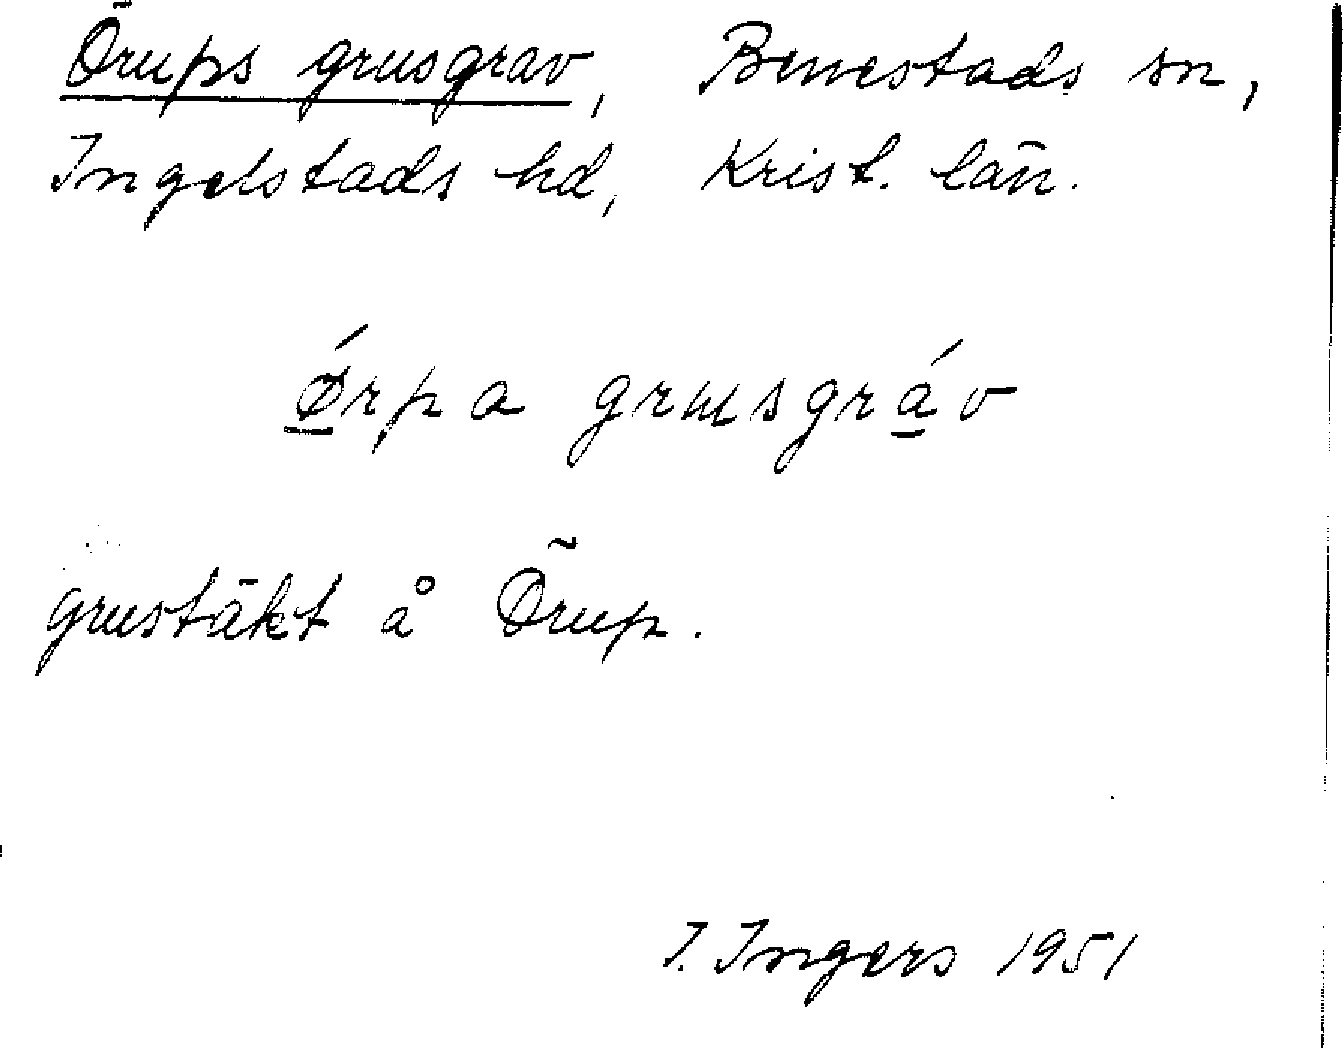 Örups grusgrav, Benestads sn,
Ingelstads hd, Krist. län.
Ǿrpa grusgráv
grustäkt å Örup.
I. Ingers 1951